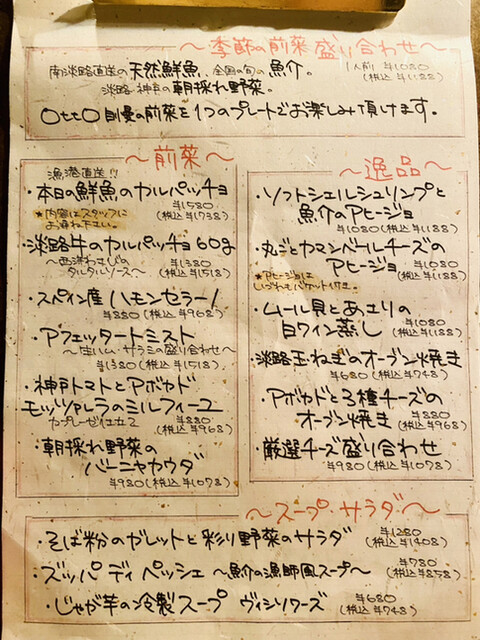 ～季節の前菜盛り合わせ～
南淡路直送の天然鮮魚、全国の旬の魚介。
1人前 ¥1080
(税込 ¥1188)
淡路・神戸の朝採れ野菜。
OttO自慢の前菜を1つのプレートでお楽しみ頂けます。
～前菜～
漁港直送!!
・本日の鮮魚のカルパッチョ
¥1580
(税込 ¥1738)
★内容はスタッフに
お尋ね下さい。
・淡路牛のカルパッチョ 60g
～西洋わさびの
タルタルソース～
¥1380
(税込 ¥1518)
・スペイン産ハモンセラーノ
¥880(税込 ¥968)
・アフェッタートミスト
～生ハム・サラミの盛り合わせ～
¥1380(税込 ¥1518)
・神戸トマトとアボカド
モッツァレラのミルフィーユ
カプレーゼ仕立て
¥880
(税込 ¥968)
・朝採れ野菜の
バーニャカウダ
¥980(税込 ¥1078)
～逸品～
・ソフトシェルシュリンプと
魚介のアヒージョ
¥1080(税込 ¥1188)
・丸ごとカマンベールチーズの
アヒージョ
¥1080
(税込 ¥1188)
★アヒージョは
いづれもバケット付き。
・ムール貝とあさりの
白ワイン蒸し
¥1080
(税込 ¥1188)
・淡路玉ねぎのオーブン焼き
¥680(税込 ¥748)
・アボカドと3種チーズの
オーブン焼き
¥880
(税込 ¥968)
・厳選チーズ盛り合わせ
¥980(税込 ¥1078)
～スープ・サラダ～
・そば粉のガレットと彩り野菜のサラダ
¥1280
(税込 ¥1408)
・ズッパ ディ ペッシェ ～魚介の漁師風スープ～
¥780
(税込 ¥858)
・じゃが芋の冷製スープ ヴィシソワーズ
¥680
(税込 ¥748)